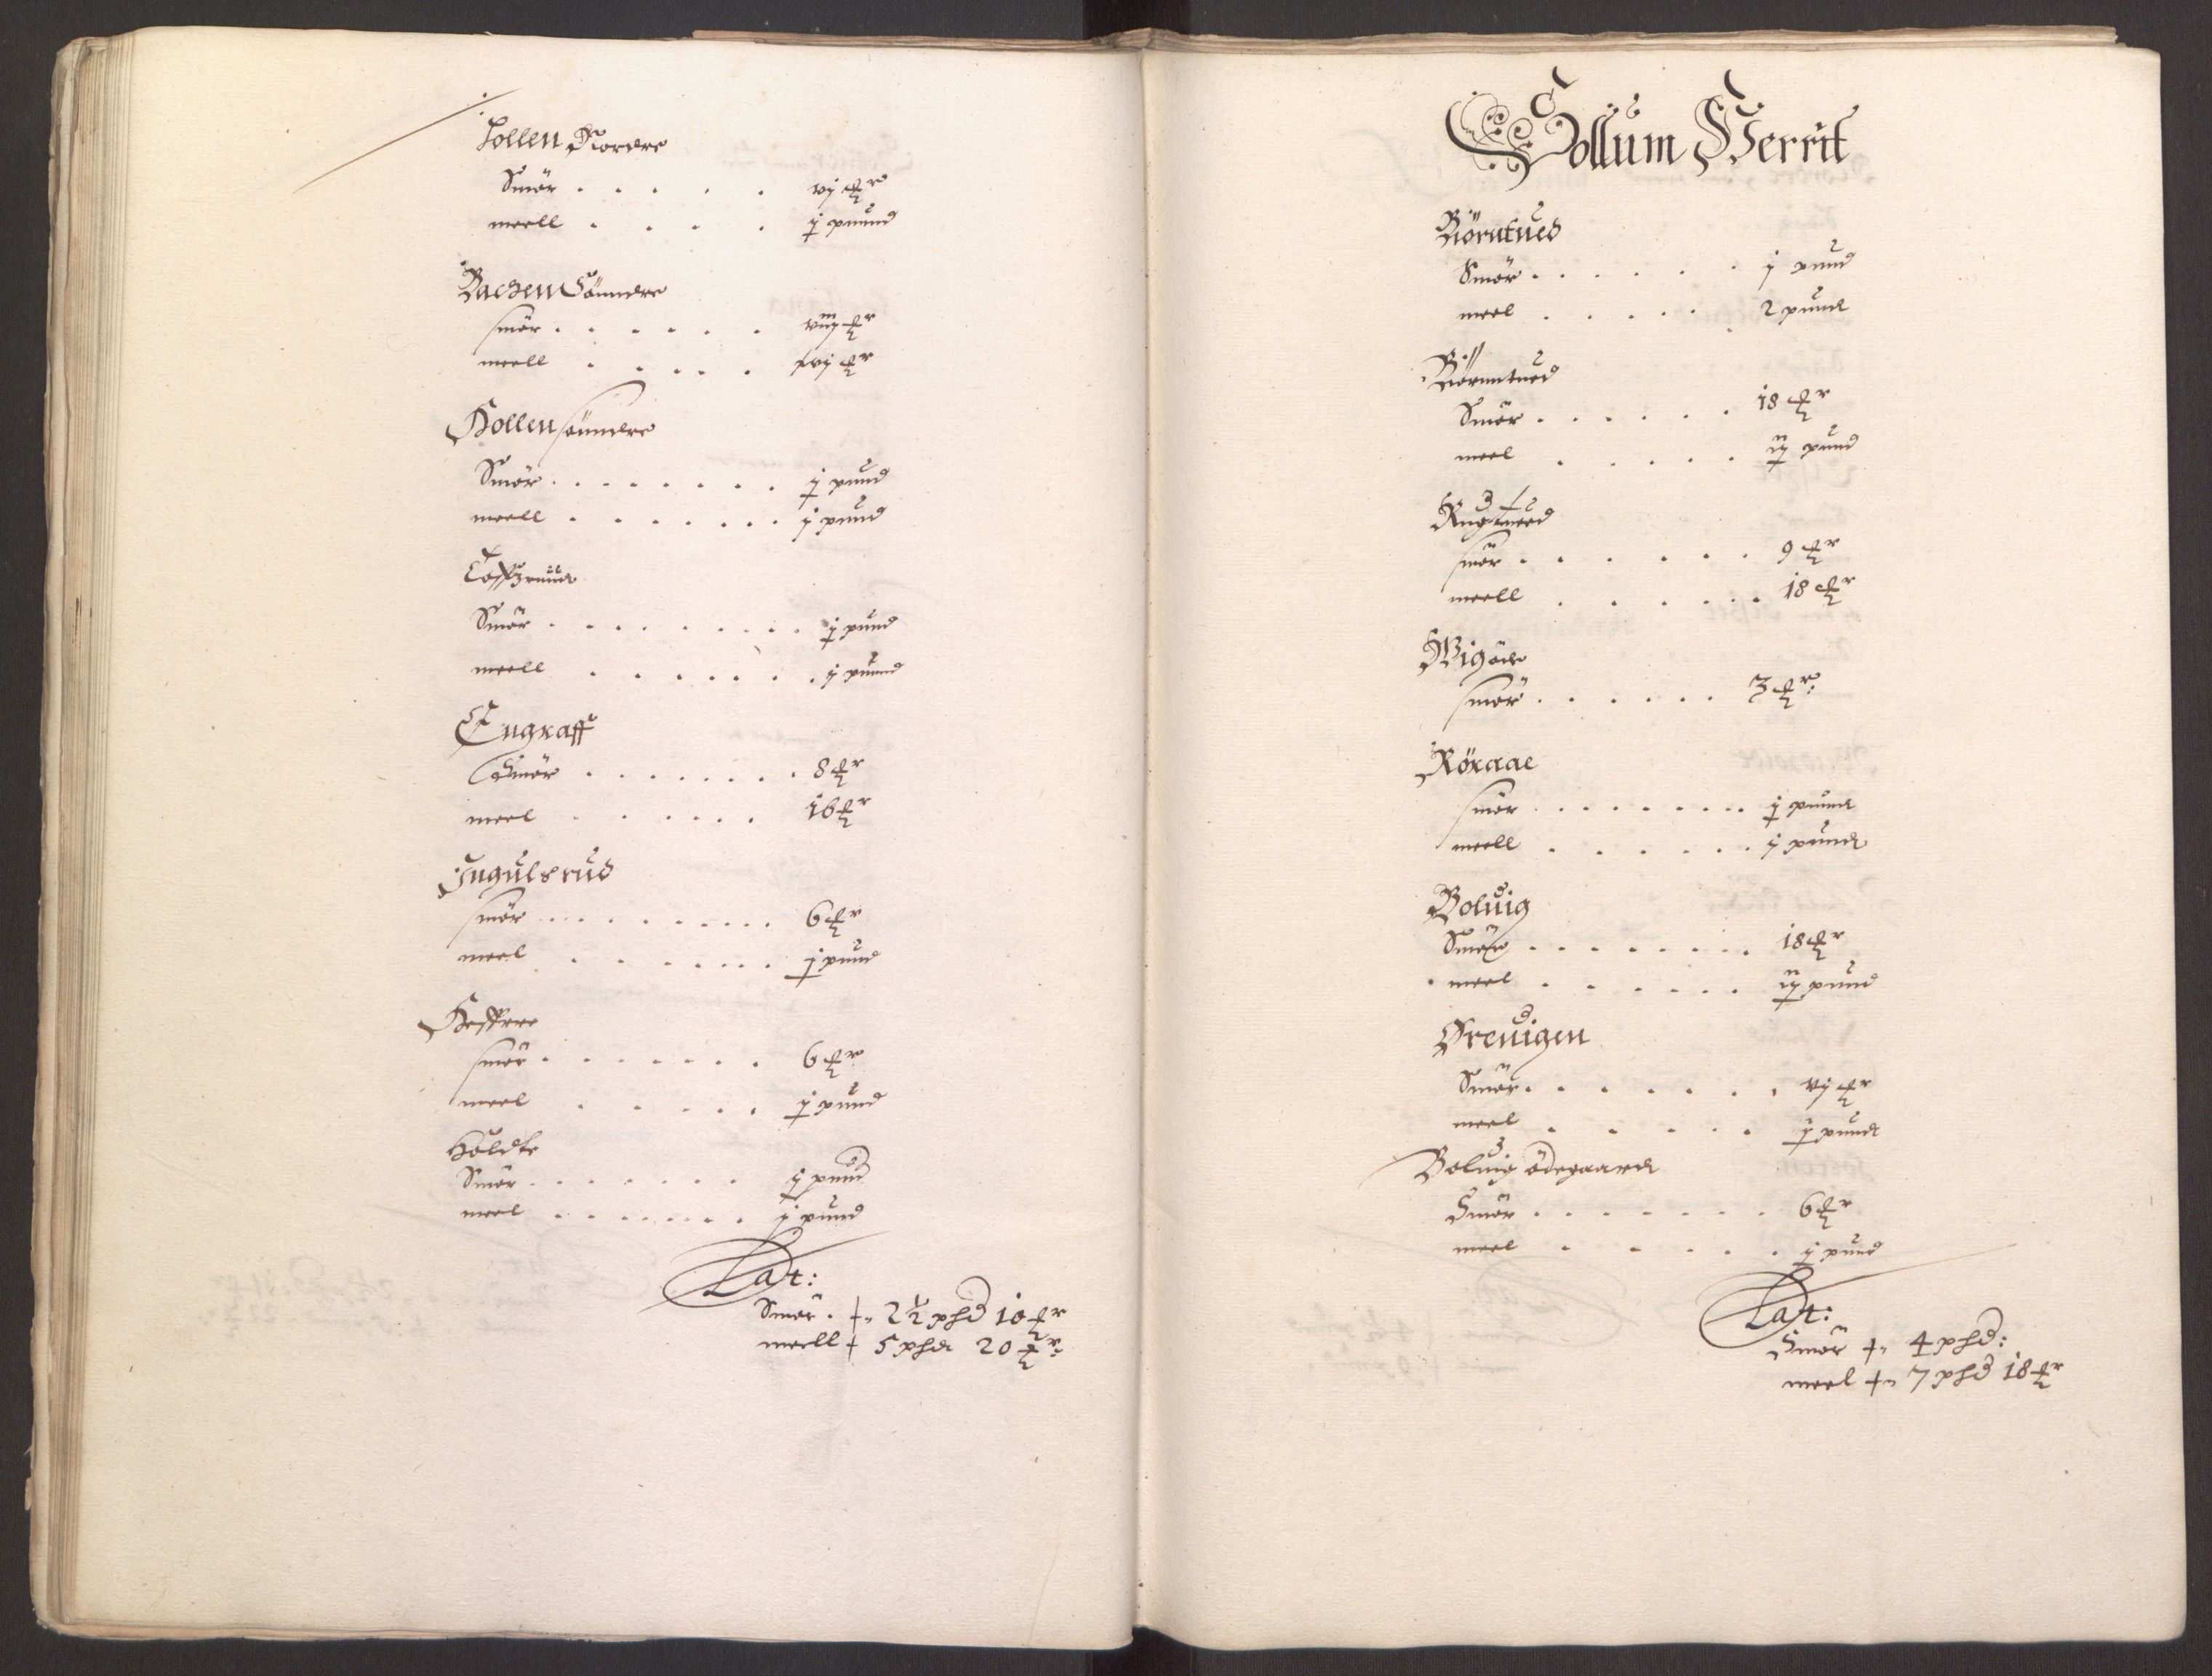 Follen Nordre
Smör . . . . . vj ℔r
meell . . . . j puund
Bachen Sönndre
smör . . . . . . viij ℔r
meell . . . . . xvj ℔r
Hollen sönndre
Smör . . . . . . . j pund
meell . . . . . . . j pund
Smör . . . . . . . . j pund
meell . . . . . . . j puund
Engraff
Smör . . . . . . . 8 ℔r
meel . . . . . . 16 ℔r
Ingulsrud
smör . . . . . . . . . 6 ℔r
meel . . . . . . . j pund
smör . . . . . . . 6 ℔r
meel . . . . . j pund
Holdte
Smör . . . . . . . j pund
meel . . . . . . . j pund
Lat:
Smör . 2½ phd 10 ℔r
meell 5 phd 20 ℔r:
Sollum Gerrit
Börntued
Smör . . . . . . j pund
meel . . . . . . 2 pund
Börnntued
Smör . . . . . . 18 ℔r
meel . . . . . ij pund
Rugtued
smör . . . . . . 9 ℔r
meell . . . . . . 18 ℔r
Wigöde
smör . . . . . . 3 ℔r:
Röraae
smör . . . . . . . . j puund
meell . . . . . . j pund
Boluig
Smör . . . . . . . . 18 ℔r
meel . . . . . . ij pund
Øreuigen
Smör . . . . . . . vj ℔r
meel . . . . . j pund
Boluig ödegaard
Smör . . . . . . . 6 ℔r
meel . . . . . j pund
Lat:
Smör 4 phd:
meel 7 phd 18 ℔r